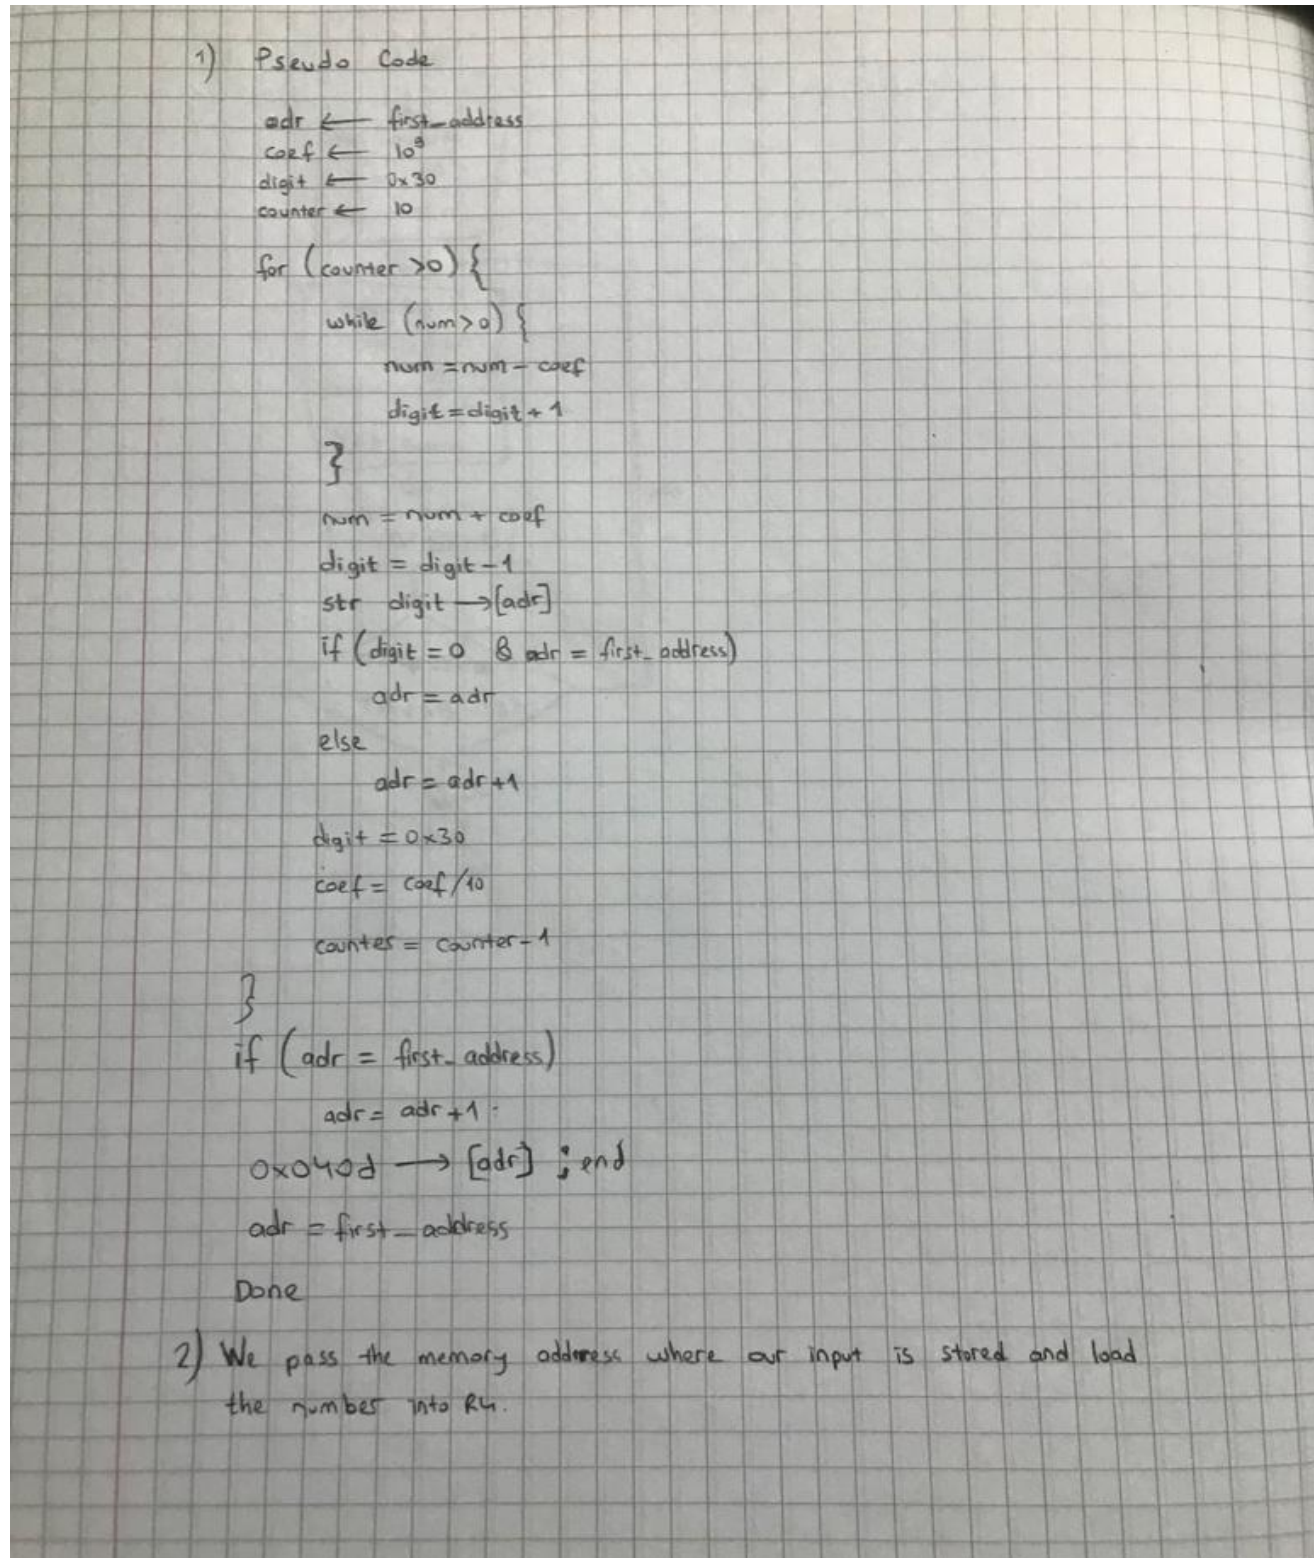 1) Pseudo Code
adr ← first_address
coef ← 10⁹
digit ← 0x30
counter ← 10
for (counter >0) {
while (num>0) {
num = num - coef
digit = digit + 1
}
num = num + coef
digit = digit - 1
str digit → [adr]
if (digit = 0 & adr = first_address)
adr = adr
else
adr = adr+1
digit = 0x30
coef = coef/10
counter = counter-1
}
if (adr = first_address)
adr = adr+1
0x040d → [adr] ; end
adr = first_address
Done
2) We pass the memory address where our input is stored and load
the number into R4.